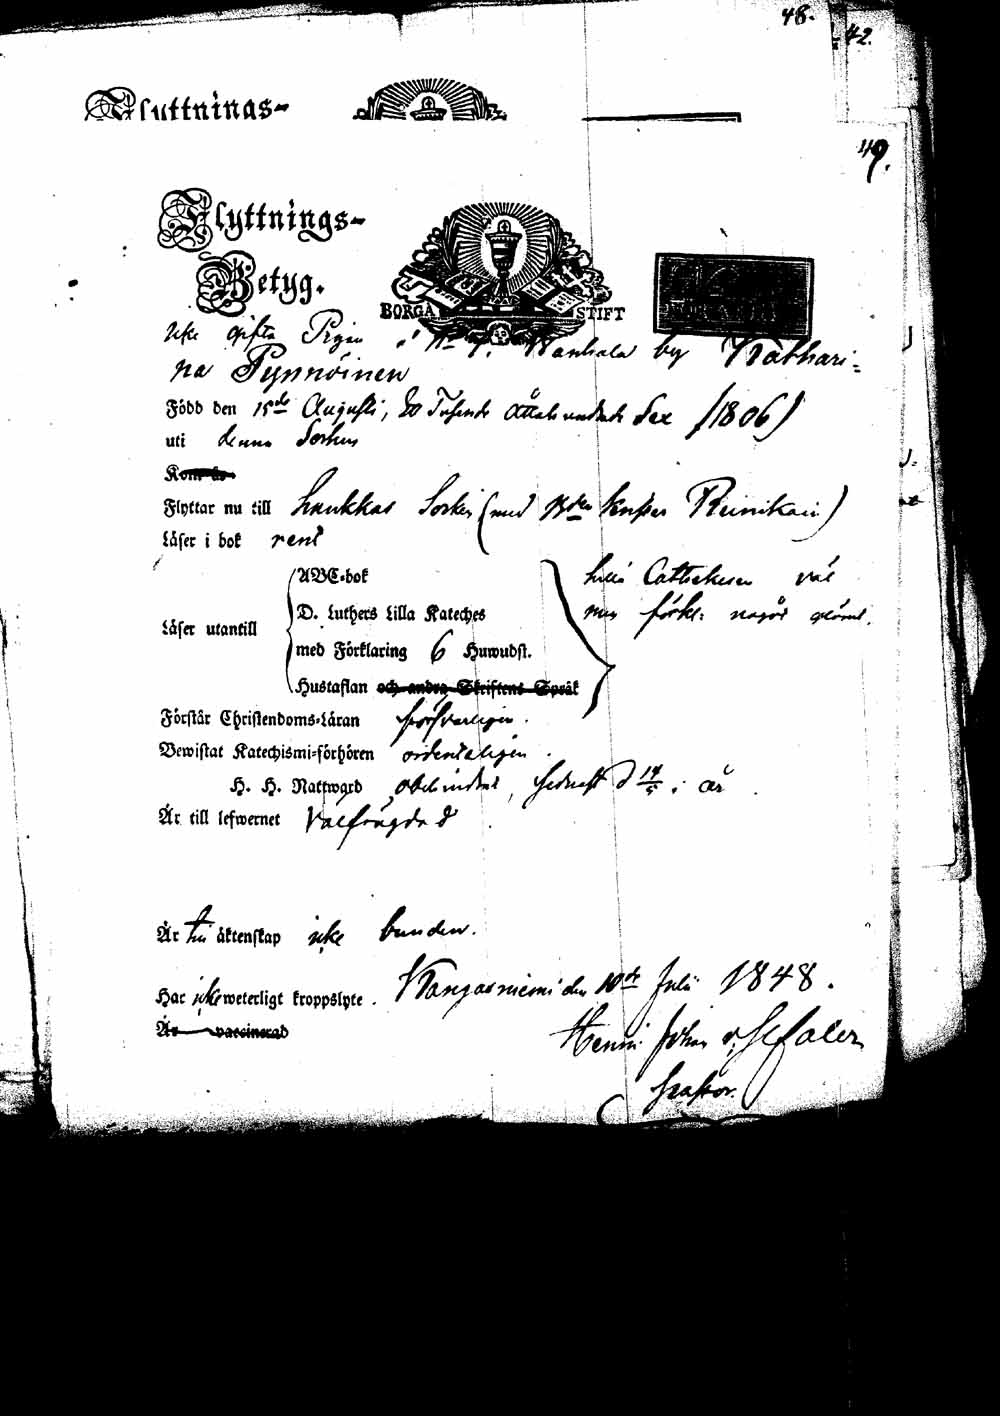 48.
42.
Flyttnings-
49.
Flyttnings-
Betyg.
BORGÅ STIFT
icke gifta Pigan i No 7. Wanhala by Kathari=
na Pynnöinen
Född den 15de Augusti, Ett Tusende Åttahundrade Sex (1806)
uti denna Sockn
Flyttar nu till Laukkas Sockn (med Reinikain)
Läser i bok rent
ABC-bok
Läser utantill
D. Luthers Lilla Kateches
med Förklaring 6 Huwudst.
Hustaflan och andra Skriftens Språk
lilla Cathekesen väl
men förkl: något glömt.
Förstår Christendoms-Läran försvarligen.
Bewistat Katechismi-förhören ordenteligen.
H. H. Nattward obehindrat, sednast d 14/5 i år
Är till lefwernet Välfrägdad
Är till äktenskap icke bunden.
Har icke weterligt kroppslyte. Kangasniemi den 10de Juli 1848.
Är vaccinerad
Henri Johan
Pastor.